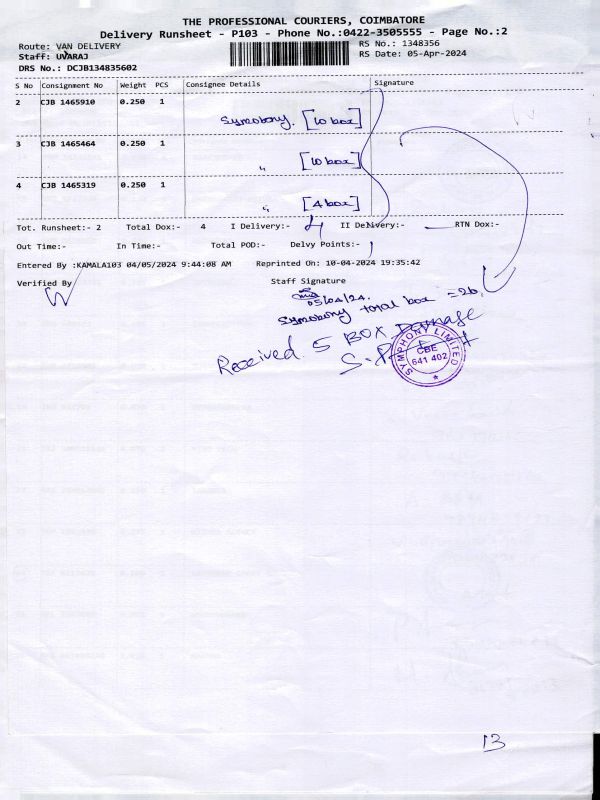 THE PROFESSIONAL COURIERS, COIMBATORE
Delivery Runsheet - P103 - Phone No.:0422-3505555 - Page No.:2
Route: VAN DELIVERY RS No.: 1348356
Staff: UVARAJ RS Date: 05-Apr-2024
DRS No.: DCJB134835602
S No Consignment No Weight PCS Consignee Details Signature
2 CJB 1465910 0.250 1
Symobony. [10 box]
3 CJB 1465464 0.250 1
" [10 box]
4 CJB 1465319 0.250 1
" [4 box]
Tot. Runsheet:- 2 Total Dox:- 4 I Delivery:- 4 II Delivery:- RTN Dox:-
Out Time:- In Time:- Total POD:- Delvy Points:- 1
Entered By :KAMALA103 04/05/2024 9:44:08 AM Reprinted On: 10-04-2024 19:35:42
Verified By Staff Signature
05/04/24.
Symobony total box = 26.
Received 5 BOX Damage
SYMPHONY LIMITED
CBE
641 402
13